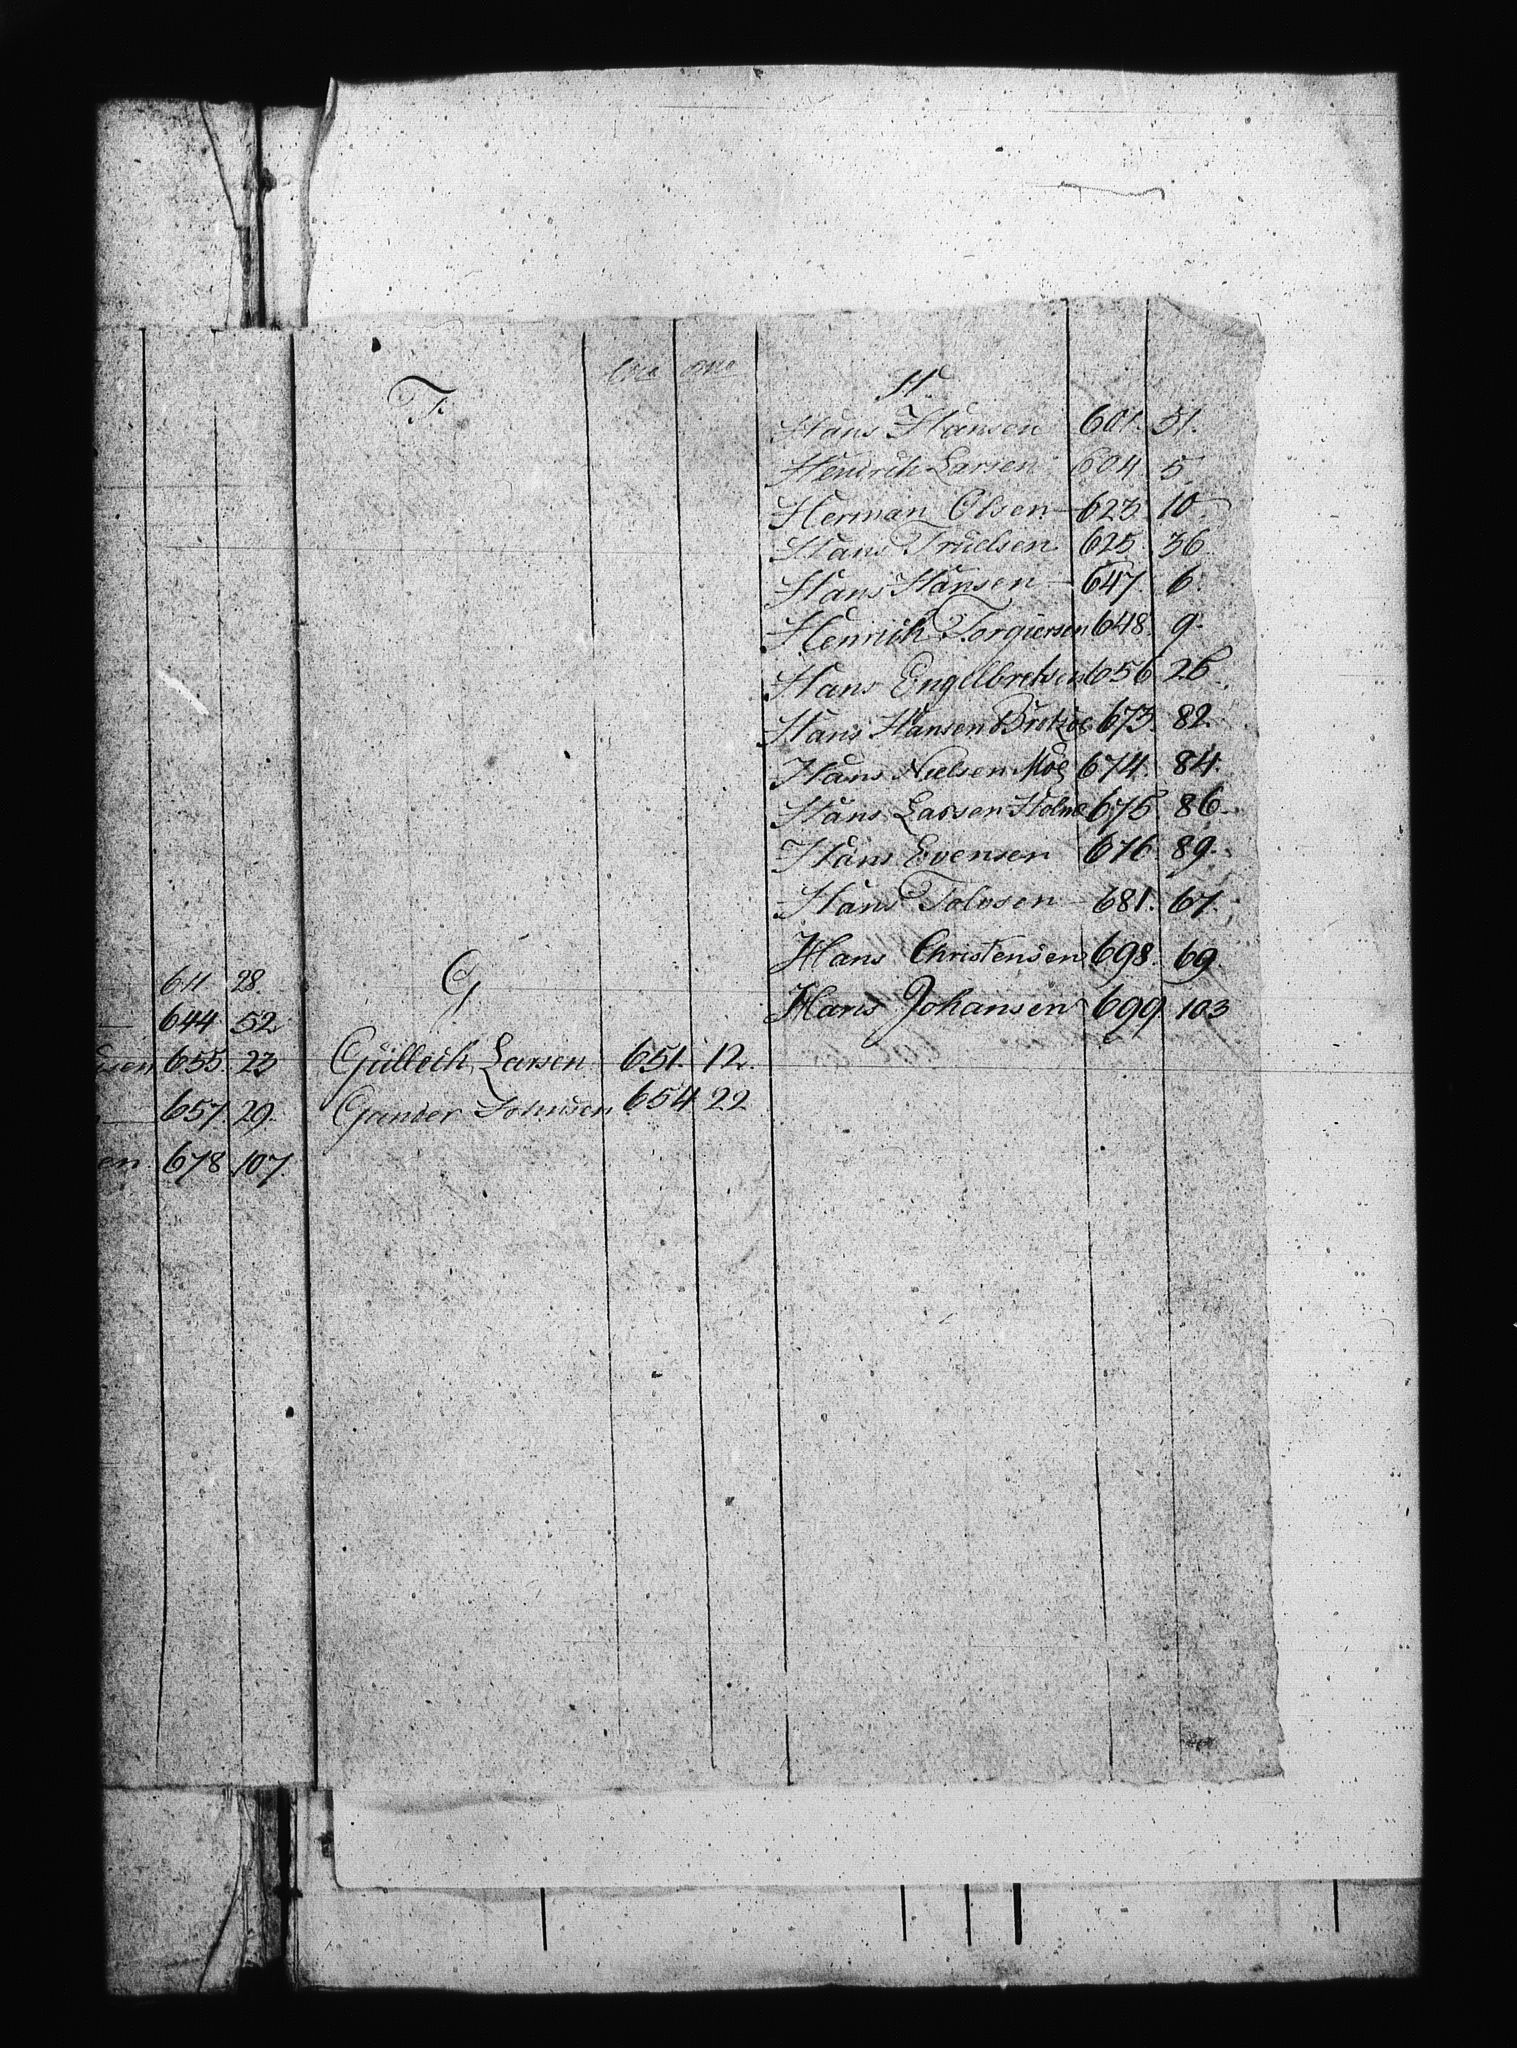 611 28.
644 52
655. 23
657. 29.
en 678 107
F.
G
Gülleich Larsen 651. 12.
Gunder Johnsen 654 22
H.
Hans Hansen 601. 51.
Hendrich Larsen 604. 5.
Herman Olsen 623. 10.
Hans Truelsen 625. 36.
Hans Hansen 647. 6.
Henrich Torgiersen 648. 9.
Hans Engelbretsen 656 26.
Hans Hansen 673. 82.
Hans Nielsen Moe 674. 84.
Hans Larsen Holm 675. 86.
Hans Evensen 676. 89.
Hans Tolvsen 681. 67.
Hans Christensen 698. 69.
Hans Johansen 699 103